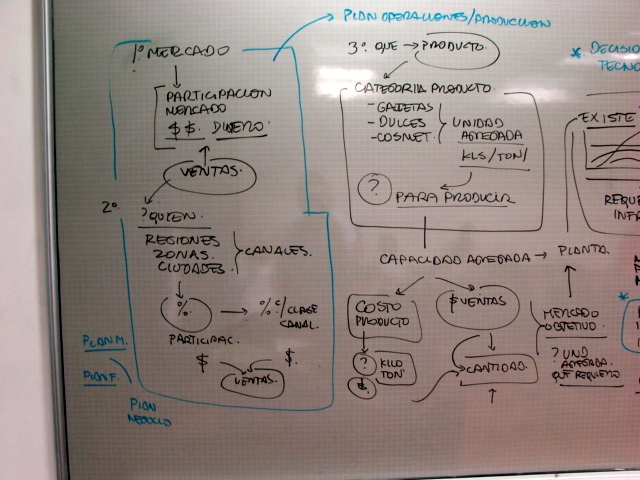 PLAN OPERACIONES/PRODUCCION
1º MERCADO
PARTICIPACION
MERCADO
$ $. DINERO.
VENTAS.
2º
? QUIEN.
REGIONES
ZONAS.
CIUDADES.
CANALES.
%.
%. C/CLASE
CANAL.
PARTICIPAC.
$ $.
VENTAS.
PLAN M.
PLAN F.
PLAN
NEGOCIO
3º QUE → PRODUCTO.
CATEGORIA PRODUCTO.
- GALLETAS
- DULCES
- COSMET.
UNIDAD
AGREGADA
KLS/TON/
?
PARA PRODUCIR
CAPACIDAD AGREGADA → PLANTA.
COSTO
PRODUCTO
? KILO
TON
$.
$ VENTAS
CANTIDAD.
MERCADO
OBJETIVO.
? UND
AGREGADA.
QUE REQUIERO
* DECISIO
TECNO
EXISTE
REQUE
INFR
*